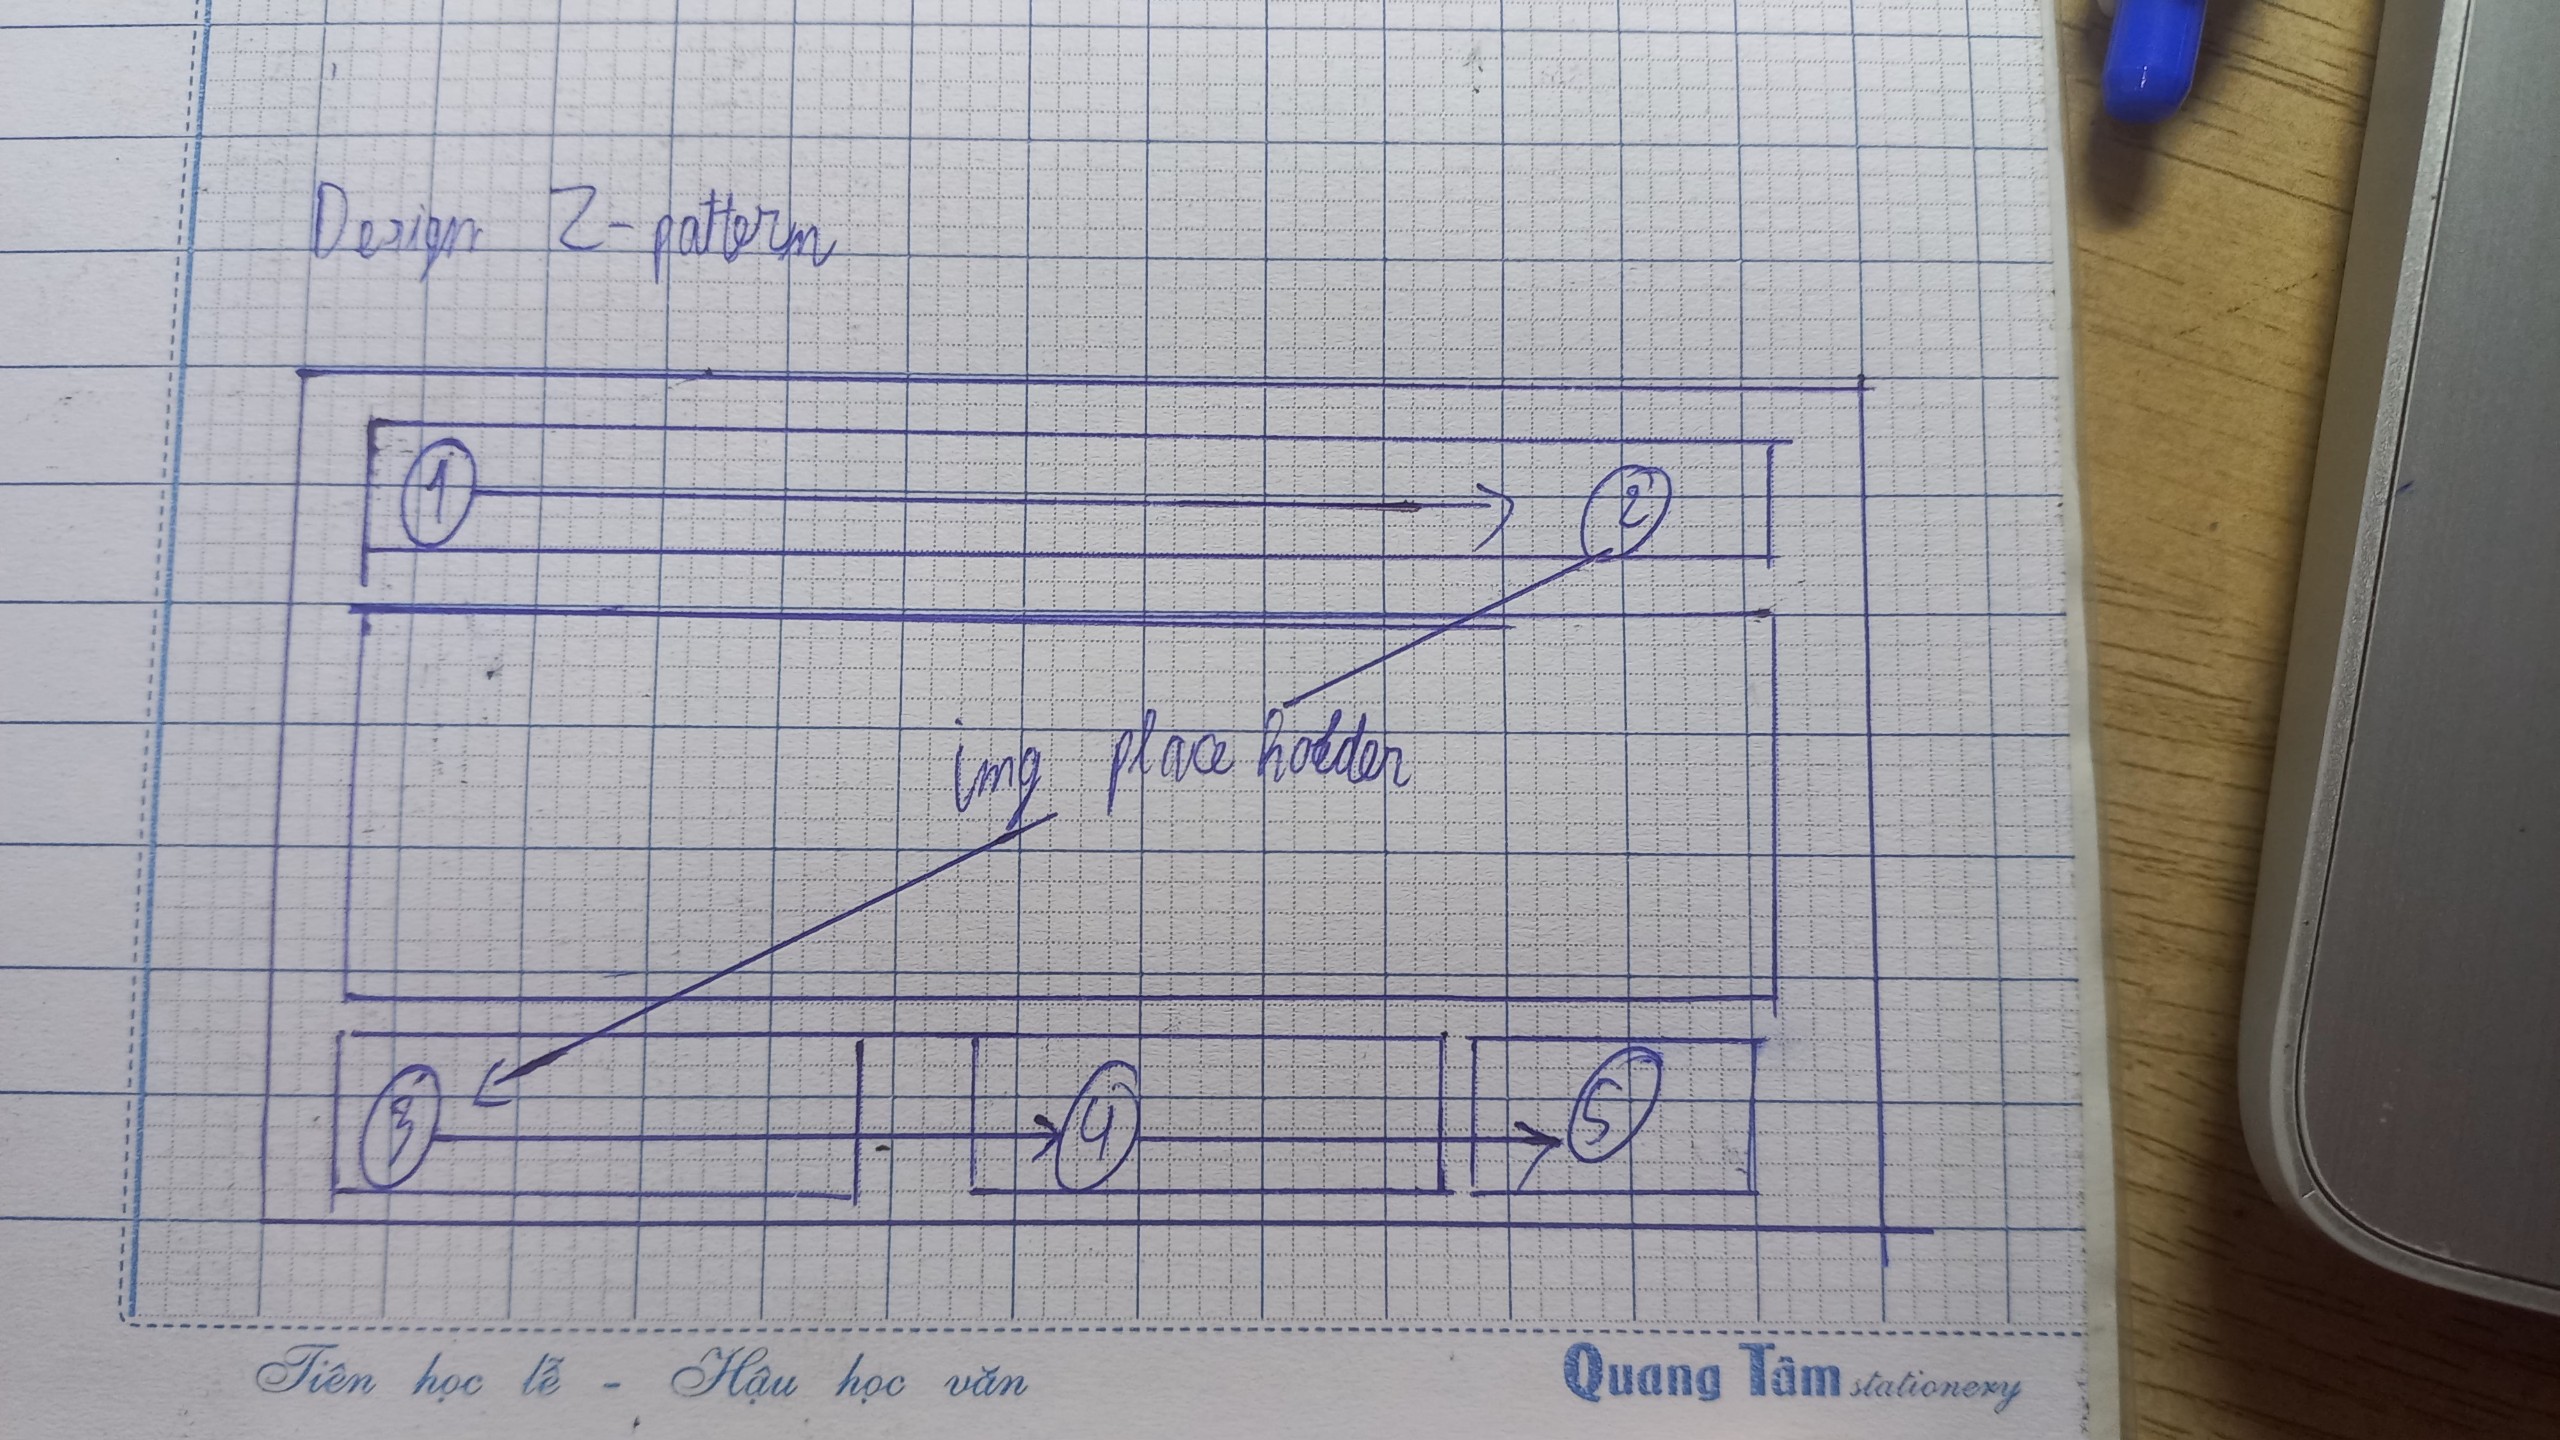 Design Z-pattern
1 2
img place holder
3 4 5
Tiên học lễ - Hậu học văn
Quang Tâm stationery